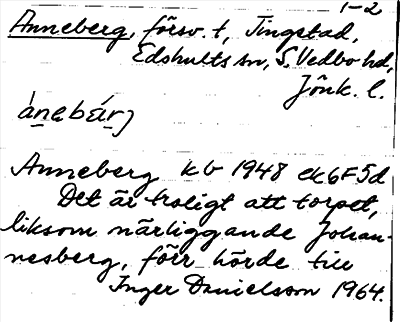 1-2
Anneberg, försv. t, Tingstad,
Edshults sn, S. Vedbo hd,
Jönk. l.
Anneberg kb 1948 ek 6F5d
Det är troligt att torpet,
liksom närliggande Johan-
nesberg, förr hörde till
Inger Danielsson 1964.